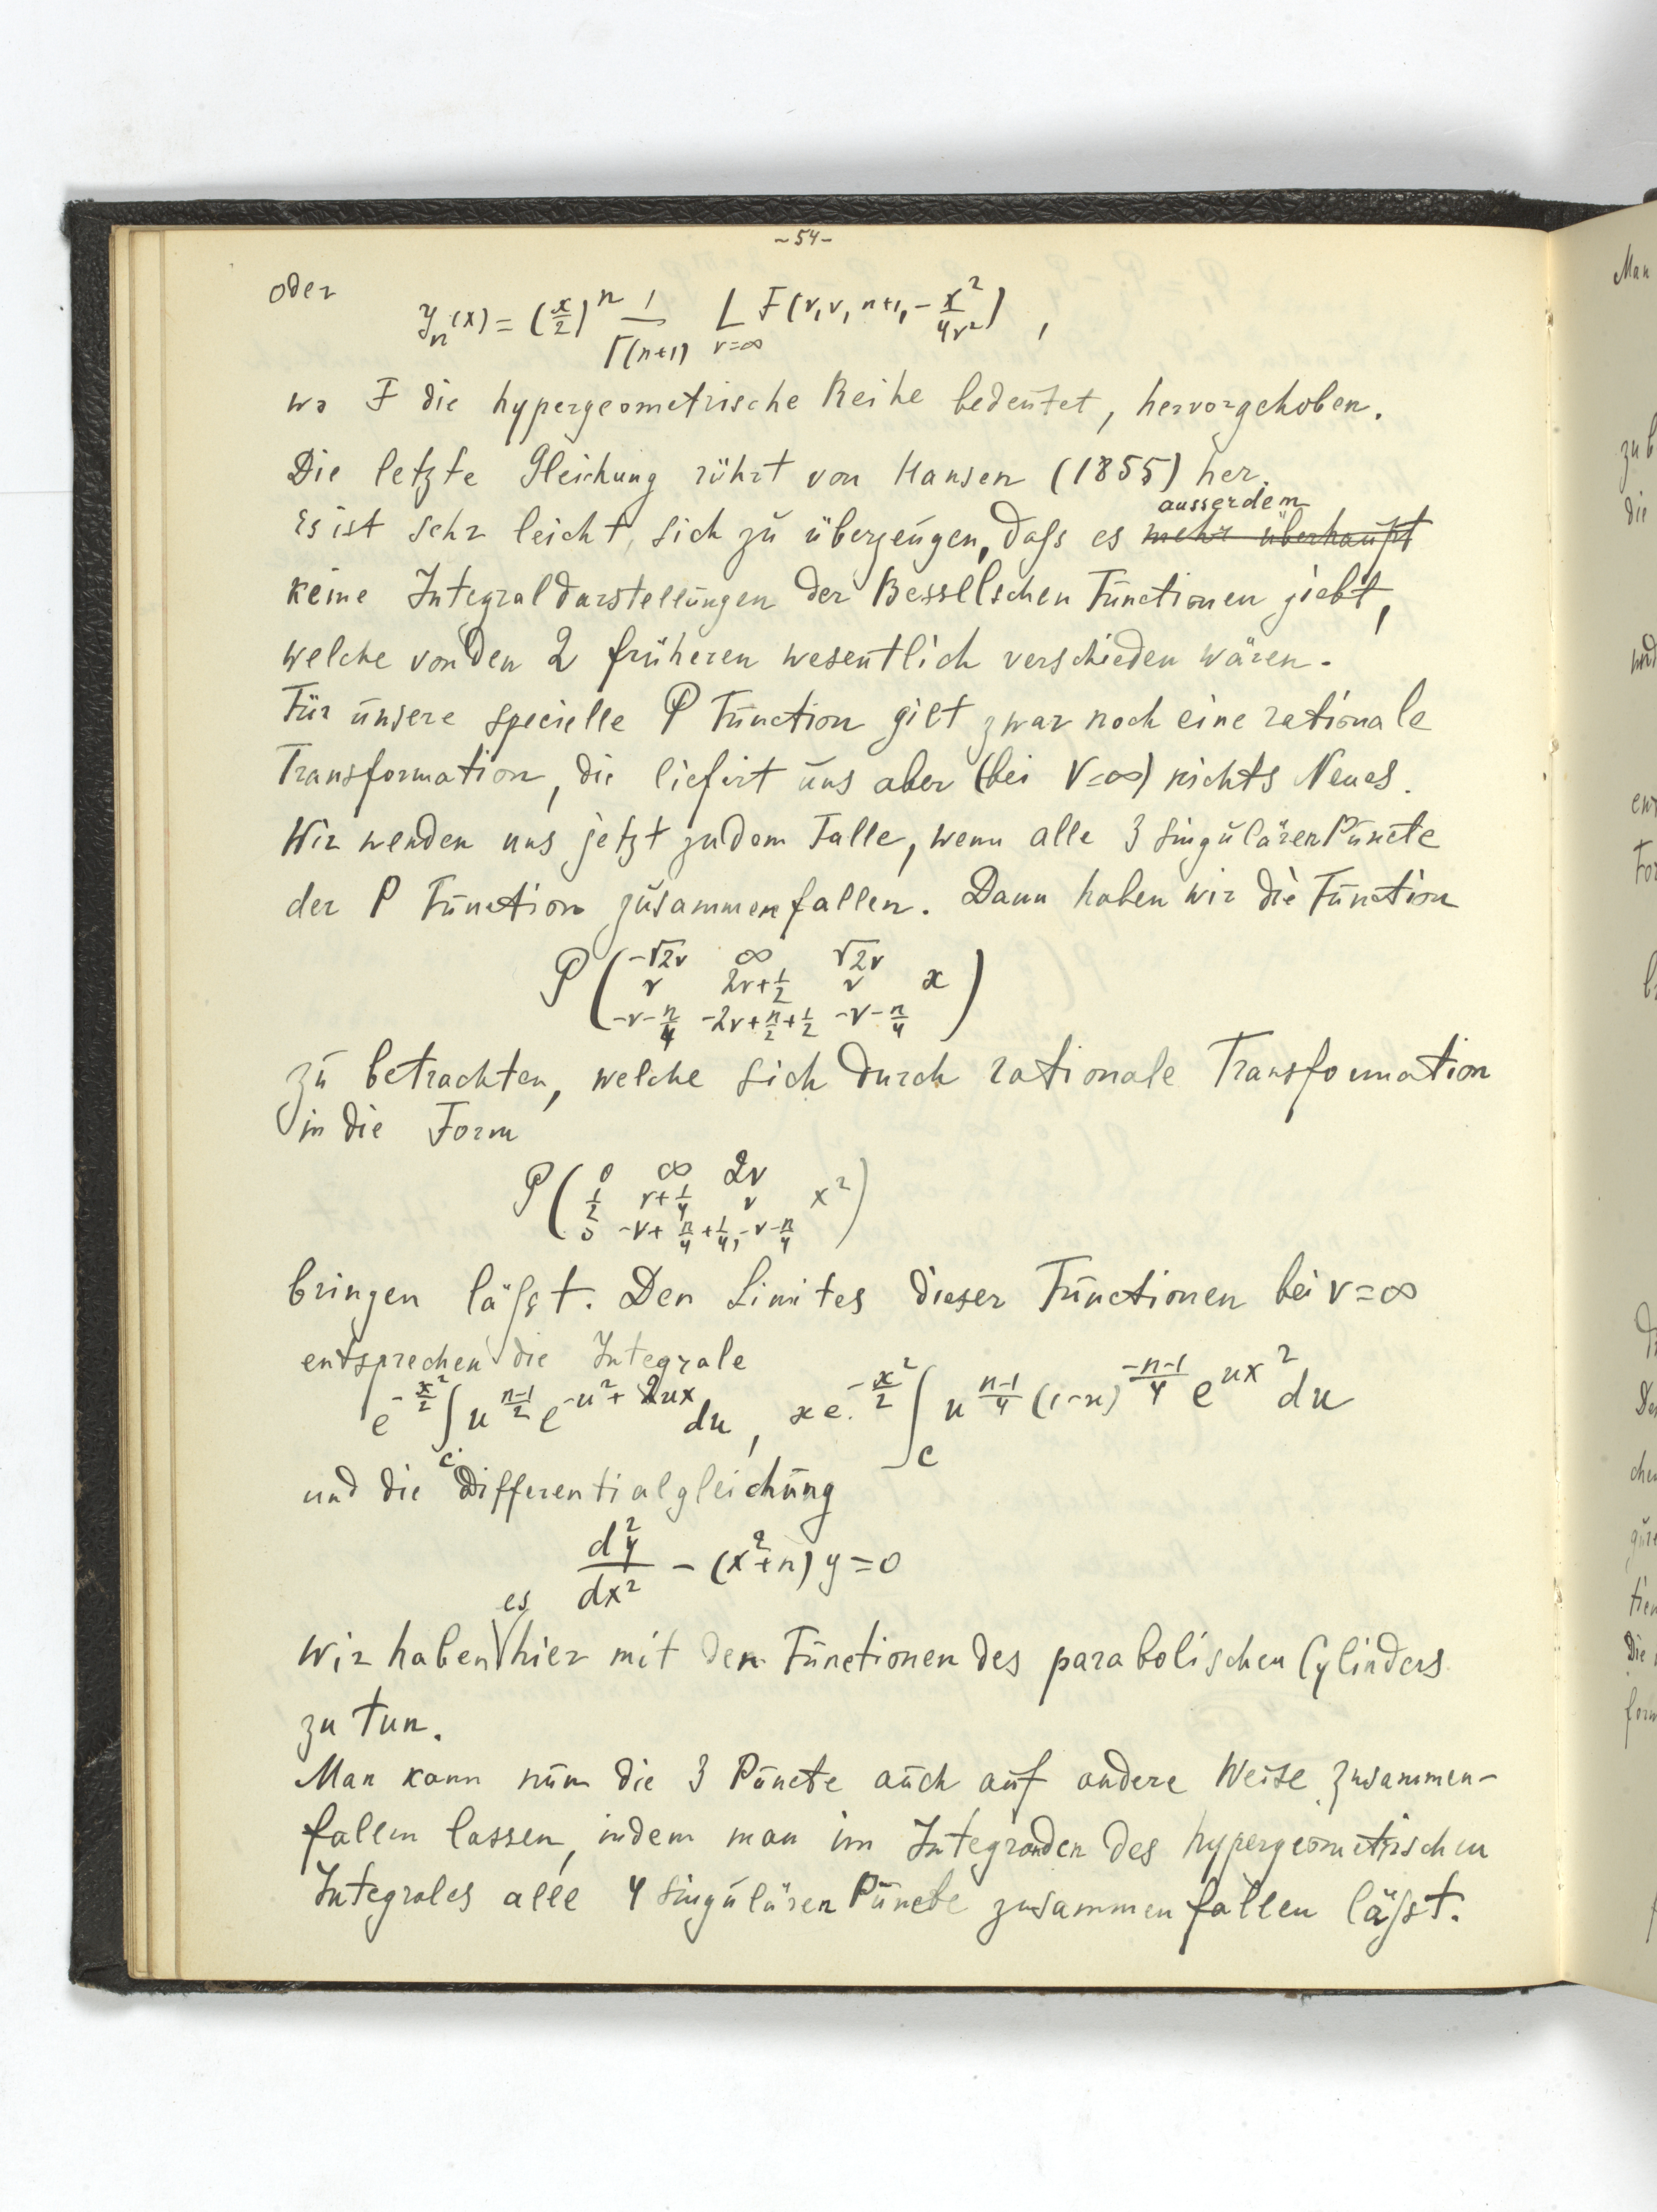 ~54-
oder
J_n(x) = (x/2)^n 1/Γ(n+1) L_{ν=∞} F(ν, ν, n+1, -x²/4ν²) ,
wo F die hypergeometrische Reihe bedeutet, hervorgehoben.
Die letzte Gleichung rührt von Hansen (1855) her.
ausserdem
Es ist sehr leicht, sich zu überzeugen, daſs es mehr überhaupt
keine Integraldarstellungen der Besselschen Functionen giebt,
welche von den 2 früheren wesentlich verschieden wären.
Für unsere specielle P Function gilt zwar noch eine rationale
Transformation, die liefert uns aber (bei ν=∞) nichts Neues.
Wir wenden uns jetzt zu dem Falle, wenn alle 3 singulären Puncte
der P Function zusammenfallen. Dann haben wir die Function
P ( -√2ν ∞ √2ν
ν 2ν+1/2 ν x
-ν-n/4 -2ν+n/2+1/2 -ν-n/4 )
zu betrachten, welche sich durch rationale Transformation
in die Form
P ( 0 ∞ 2ν
1/2 ν+1/4 ν x²
0 -ν+n/4+1/4, -ν-n/4 )
bringen läſst. Den Limites dieser Functionen bei ν=∞
entsprechen die Integrale
e^{-x²/2} ∫_C u^{(n-1)/2} e^{-u²+2ux} du, x e^{-x²/2} ∫_C u^{(n-1)/4} (1-u)^{(-n-1)/4} e^{ux²} du
und die Differentialgleichung
d²y/dx² - (x²+n) y = 0
es
Wir haben hier mit den Functionen des parabolischen Cylinders
zu tun.
Man kann nun die 3 Puncte auch auf andere Weise zusammen-
fallen lassen, indem man im Integranden des hypergeometrischen
Integrales alle 4 singulären Puncte zusammenfallen läſst.
Man
die